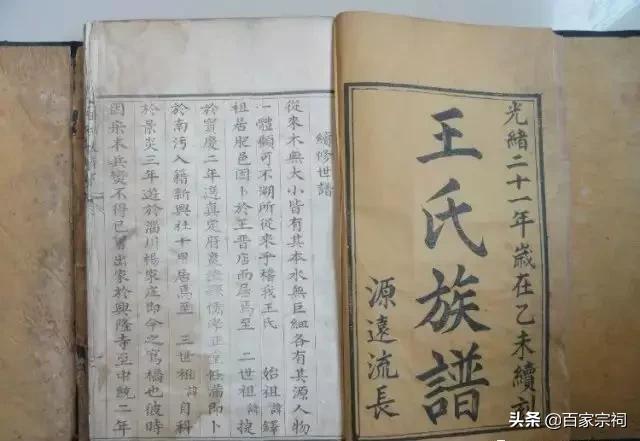 光緒二十一年歲在乙未續刻
王氏族譜
源遠流長
續修世譜
從來木無大小皆有其本水無巨細各有其源人物
一體顧可不溯所從來乎稽我王氏 始祖諱鐸
祖居肥邑因卜於王晉店而居焉至 二世祖諱
於寶慶二年選真定府 儒學正堂任滿即卜
於南汚入籍新興社十甲居焉至 三世祖諱自科
於景炎三年遊於淄川楊家庄即今之窎橋也彼時
因宋末兵變不得已曾出家於興隆寺至中統二年
头条 @百家宗祠